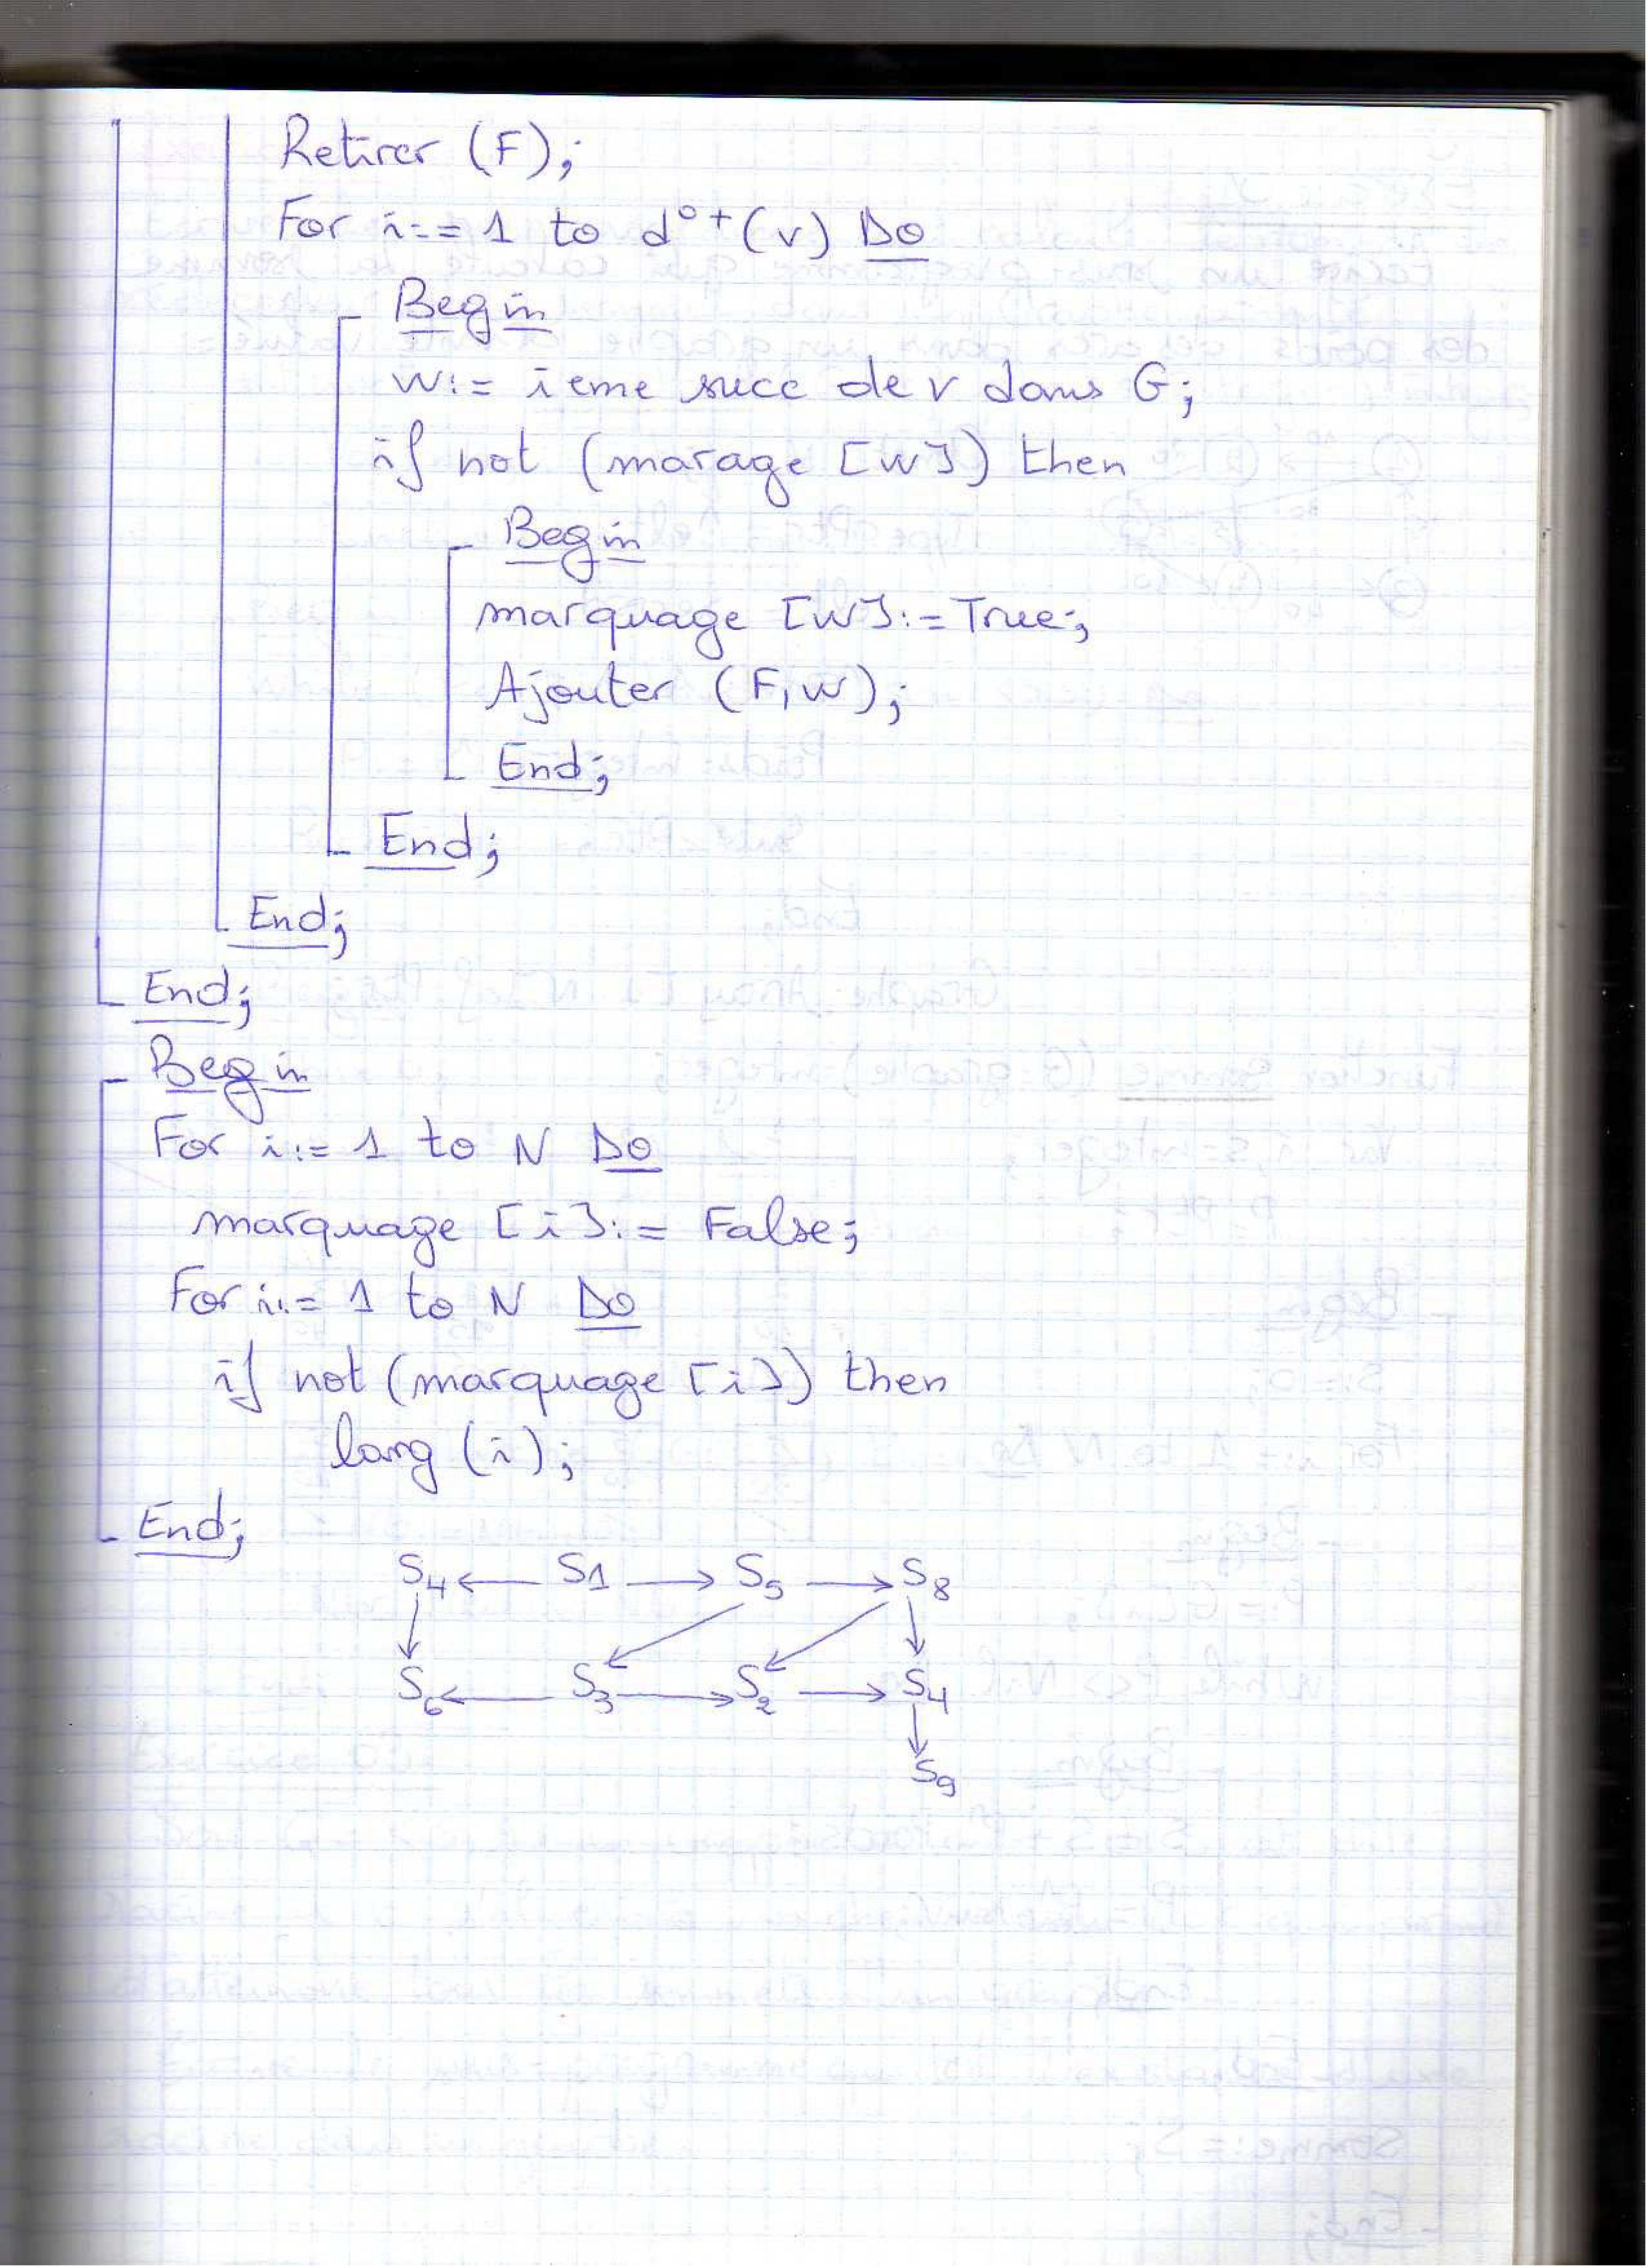 Retirer (F);
For i:= 1 to d°+(v) Do
Begin
w:= ieme succ de v dans G;
if not (marage [w]) then
Begin
marquage [w]:= True;
Ajouter (F,w);
End;
End;
End;
End;
Begin
For i:= 1 to N Do
marquage [i]:= False;
For i:= 1 to N Do
if not (marquage [i]) then
larg (i);
End;
S4 ← S1 → S5 → S8
S6 ← S3 → S2 → S4
S9